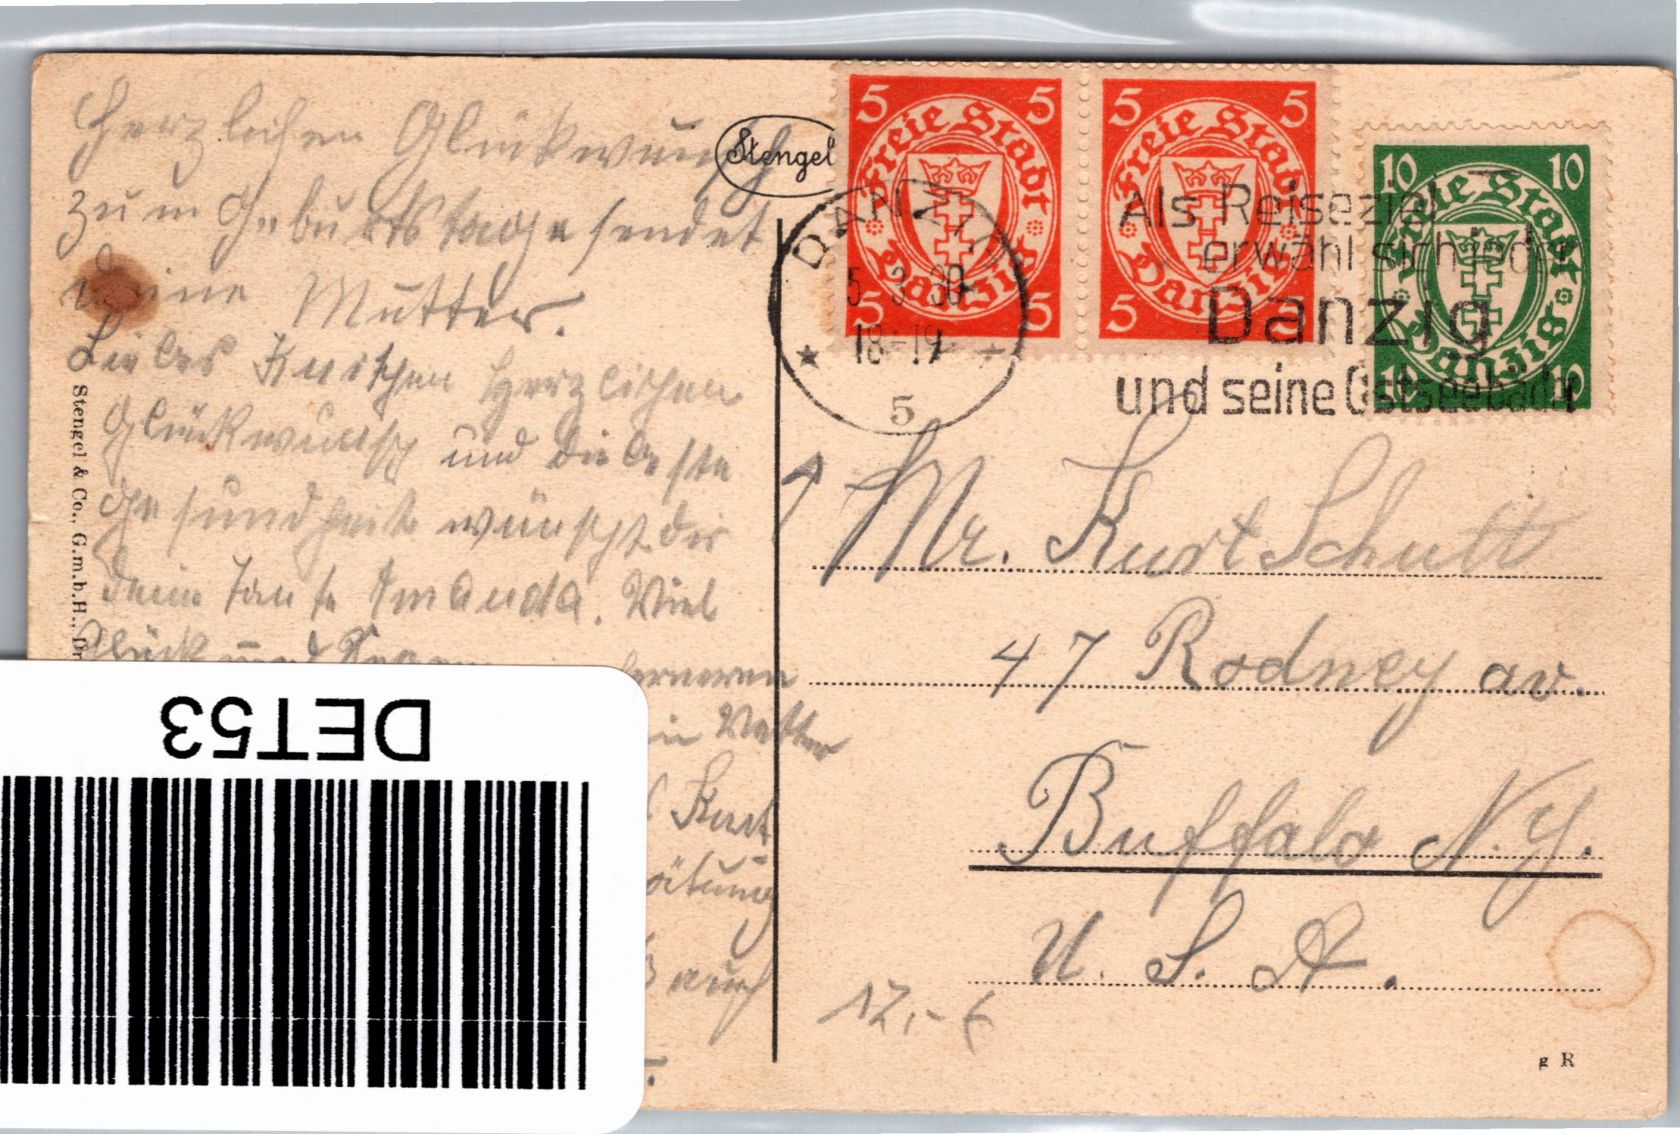 Herzlichen Glückwunsch
zum Geburtstage sendet
deine Mutter.
Liebes Kurtchen Herzlichen
Glückwunsch und die beste
Gesundheit wünscht dir
deine Tante Amanda. Viel
Glück und Segen ferneren
Vetter
Kurt
auch
Stengel & Co., G.m.b.H., Dr
Stengel
5 5
Freie Stadt
Danzig
5 5
5 5
Freie Stadt
Danzig
5 5
10 10
Freie Stadt
Danzig
10 10
DANZIG
5 3 30
18-19
5
Als Reiseziel
erwähl sich jeder
Danzig
und seine Ostseebäder
Mr. Kurt Schutt
47 Rodney av.
Buffalo N.Y.
U. S. A.
12,- €
g R
DET53